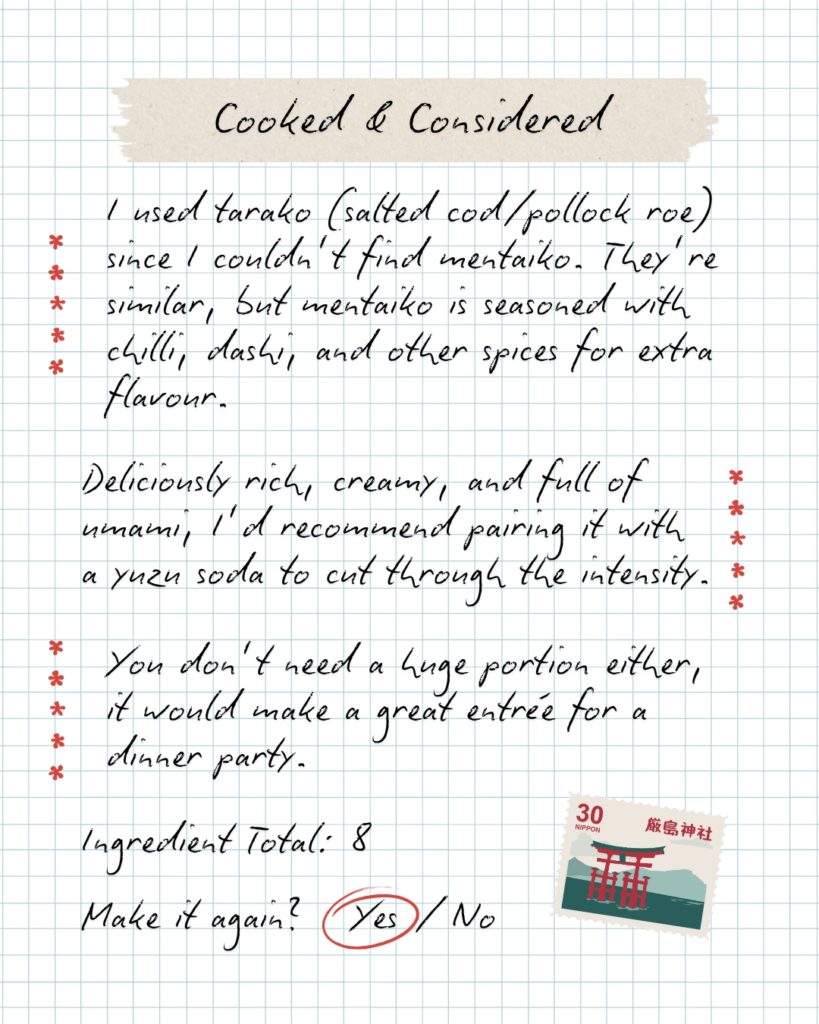 Cooked & Considered
I used tarako (salted cod/pollock roe)
since I couldn't find mentaiko. They're
similar, but mentaiko is seasoned with
chilli, dashi, and other spices for extra
flavour.
Deliciously rich, creamy, and full of
umami, I'd recommend pairing it with
a yuzu soda to cut through the intensity.
You don't need a huge portion either,
it would make a great entrée for a
dinner party.
Ingredient Total: 8
Make it again? Yes / No
30
NIPPON
厳島神社